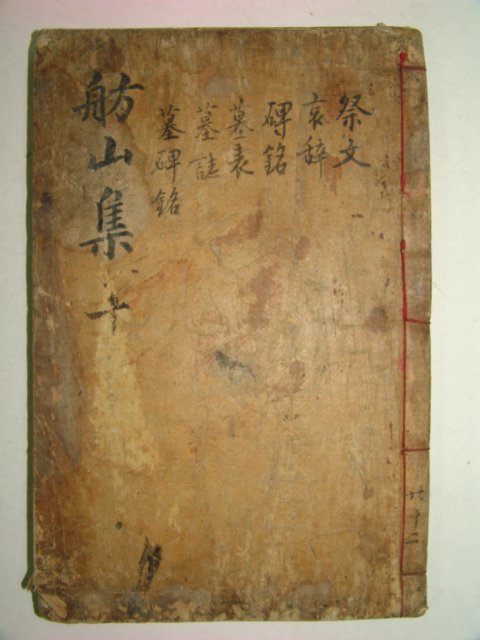 祭文
哀辞
碑銘
墓表
墓誌
墓碑銘
舫山集 十
共十二